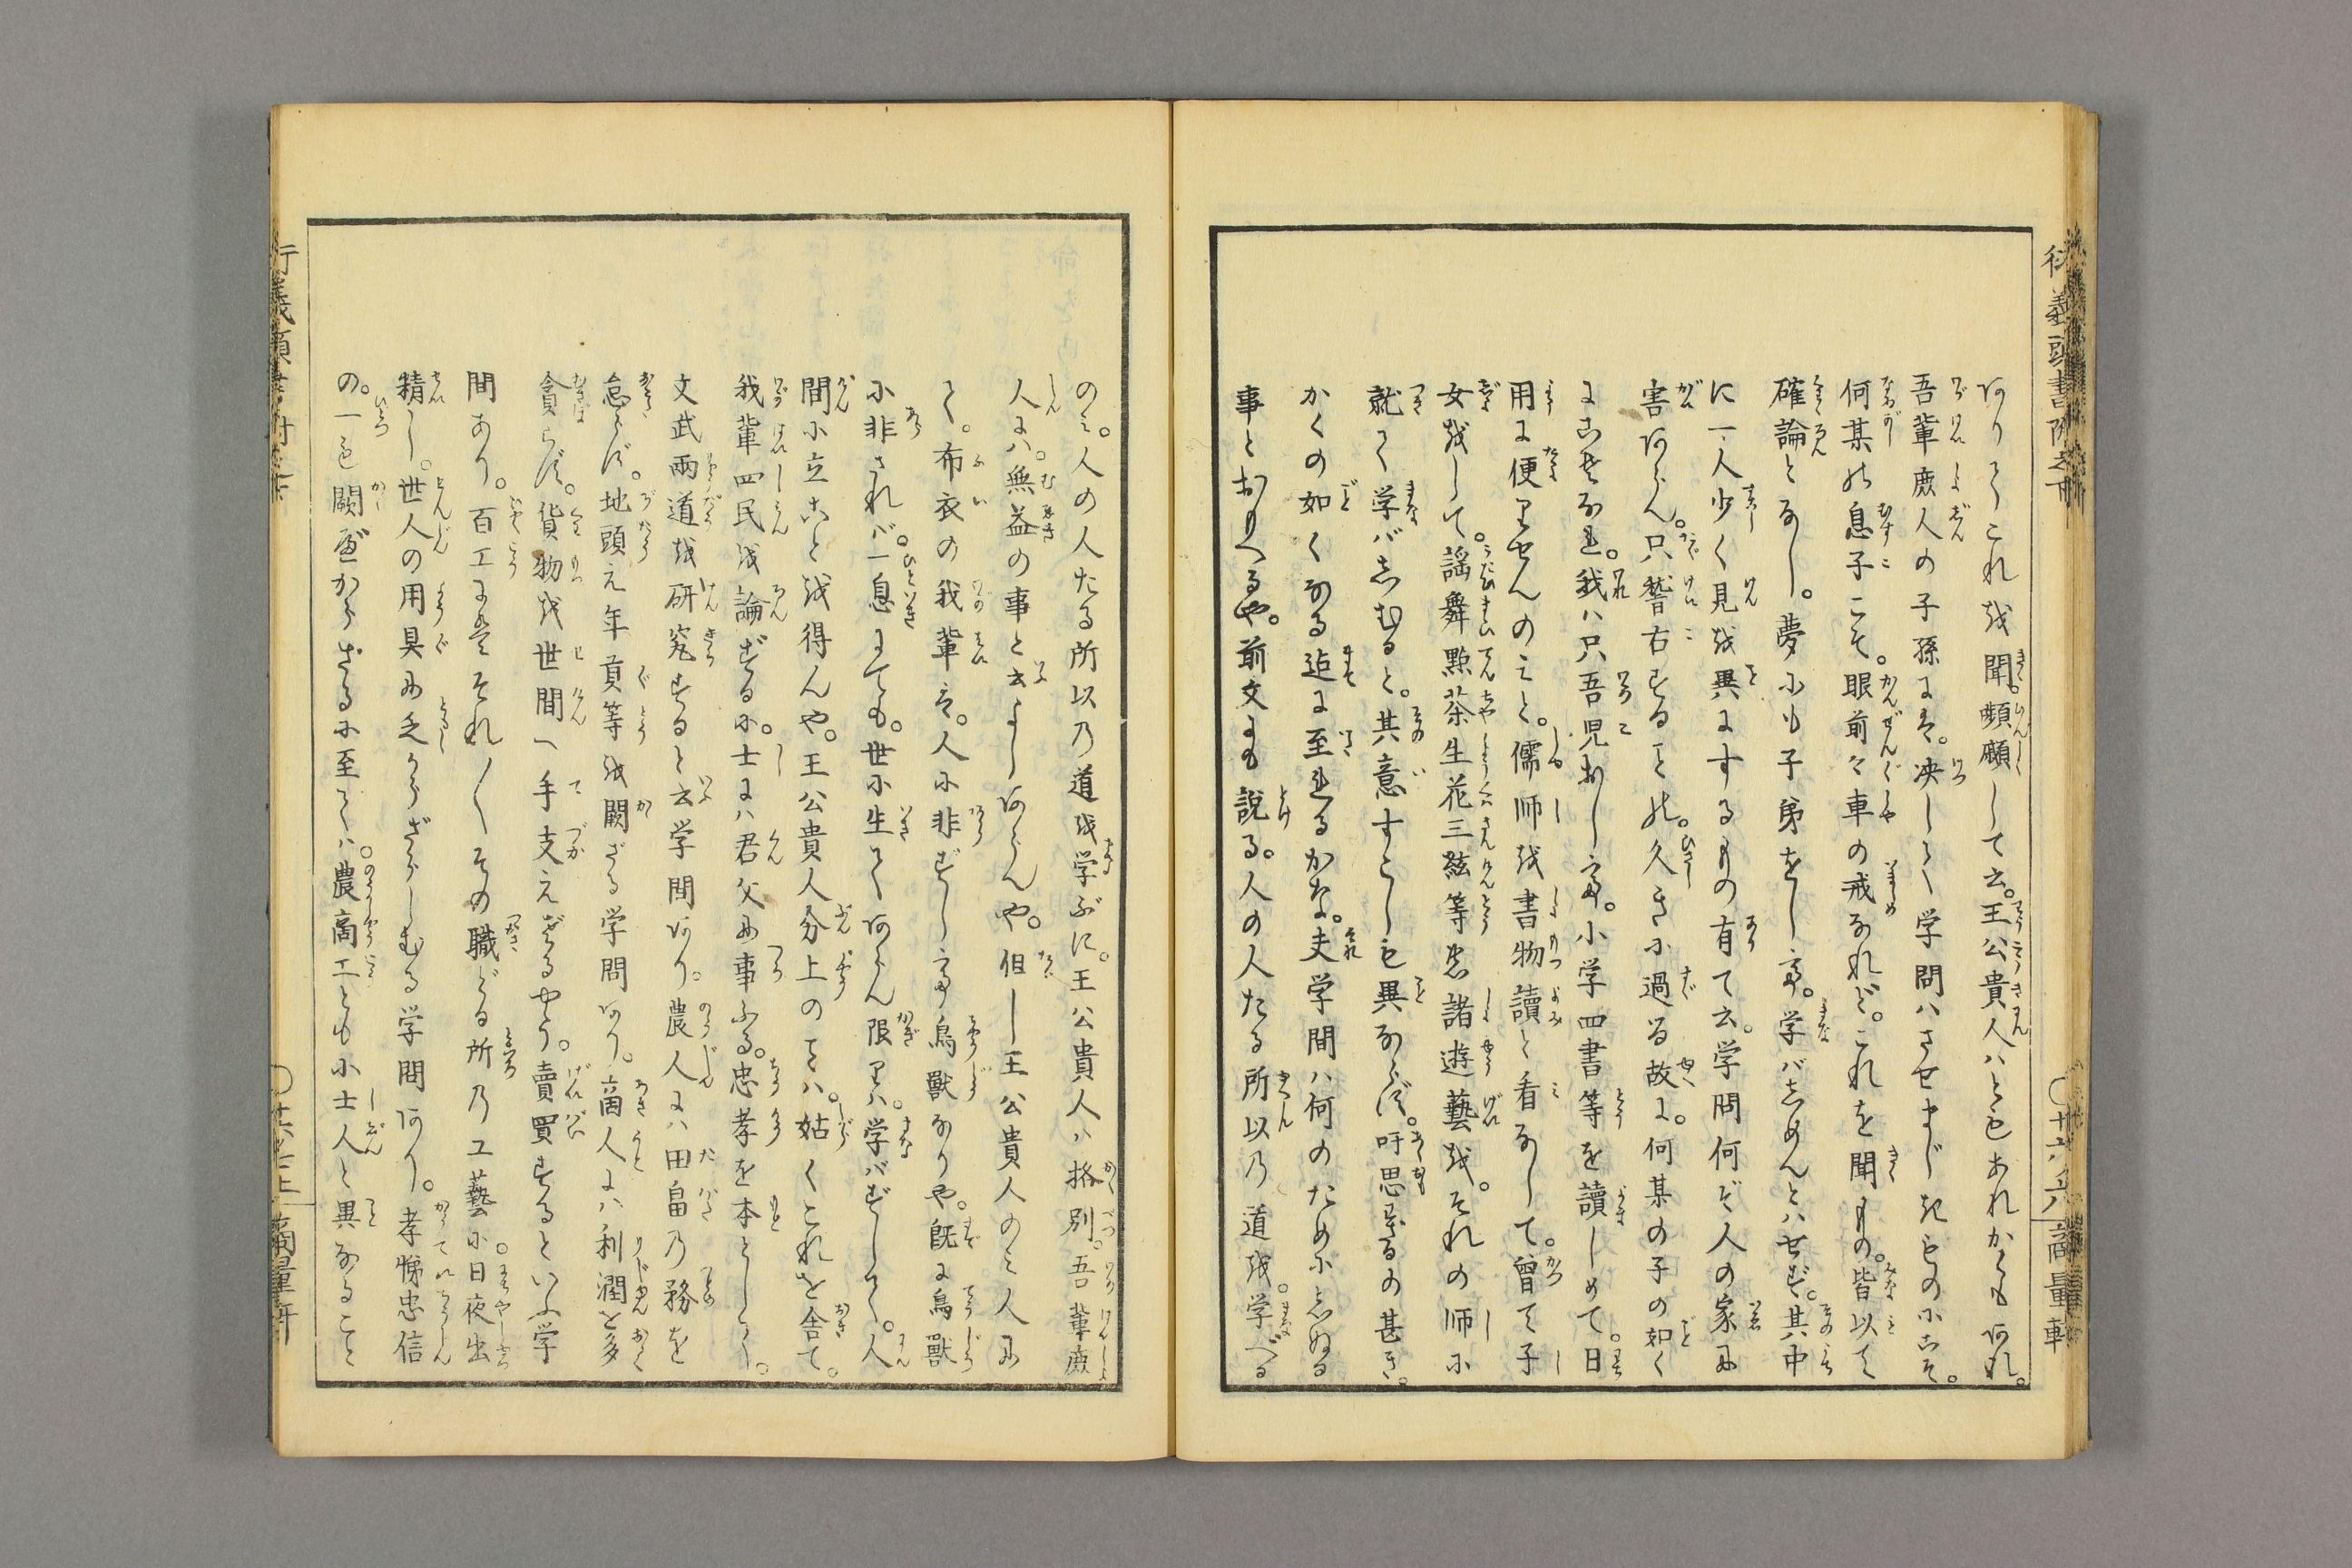 ありてこれを聞。顰顣して云。王公貴人はともあれかくもあれ。
吾輩庶人の子孫には。决して学問はさせまじきものにこそ。
何某の息子こそ。眼前々車の戒なれど。これを聞もの。皆以て
確論となし。夢にも子弟をして。学ばしめんとはせず。其中
に一人少く見を異にするもの有て云。学問何ぞ人の家に
害あらん。只稽古することの。久きに過る故に。何某の子の如く
にこそなれ。我は只吾児をして。小学四書等を讀しめて。日
用に便りせんのみと。儒師を書物讀と看なして。曾て子
女をして。謡舞點茶生花三絃等悉諸遊藝を。それの師に
就て学ばしむると。其意すこしも異ならず。吁思ざるの甚き。
かくの如くなる迠に至れるかな。夫学問は何のためにしぬる
事とおもへるや。前文にも説る。人の人たる所以乃道を。学べる
のみ。人の人たる所以乃道を学ぶに。王公貴人は挌別。吾輩庶
人には。無益の事と云よしあらんや。但し王公貴人のみ人に
て。布衣の我輩は。人に非ずして鳥獣なりや。既に鳥獣
に非ざれば。一息にても。世に生てあらん限りは。学ばずして。人
間に立ことを得んや。王公貴人分上のことは。姑くこれを舎て。
我輩四民を論ずるに。士には君父に事ふる。忠孝を本として。
文武兩道を研究すると云学問あり。農人には田畠乃務を
怠らず。地頭え年貢等を闕ざる学問あり。商人には利潤を多
貪らず。貨物を世間へ手支えざるやう。賣買するといふ学
問あり。百工にはそれ〳〵その職どる所乃工藝に。日夜出
精し。世人の用具に乏からざらしむる学問あり。孝悌忠信
の。一も闕べからざるに至ては。農商工とも小士人と異なること
衍義頭書附之下
○十六
商量軒